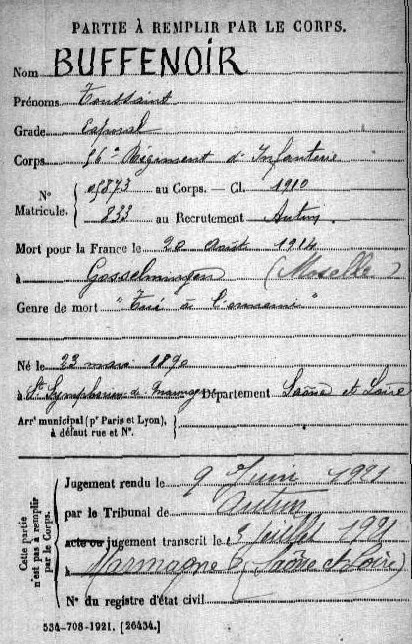 PARTIE À REMPLIR PAR LE CORPS.
Nom BUFFENOIR
Prénoms Toussaint
Grade Caporal
Corps 56e Régiment d'Infanterie
N° Matricule. { 05873 au Corps. — Cl. 1910
833 au Recrutement Autun.
Mort pour la France le 20 août 1914
à Gosselmingen (Moselle)
Genre de mort "Tué à l'ennemi"
Né le 23 mars 1890
à St Symphorien de Marmagne Département Saône et Loire
Arrt municipal (pr Paris et Lyon), à défaut rue et N°. {
Cette partie n'est pas à remplir par le Corps.
Jugement rendu le 9 Juin 1921
par le Tribunal de Autun
acte ou jugement transcrit le Juillet 1921
à Marmagne (Saône et Loire)
N° du registre d'état civil
534-708-1921. [26434.]